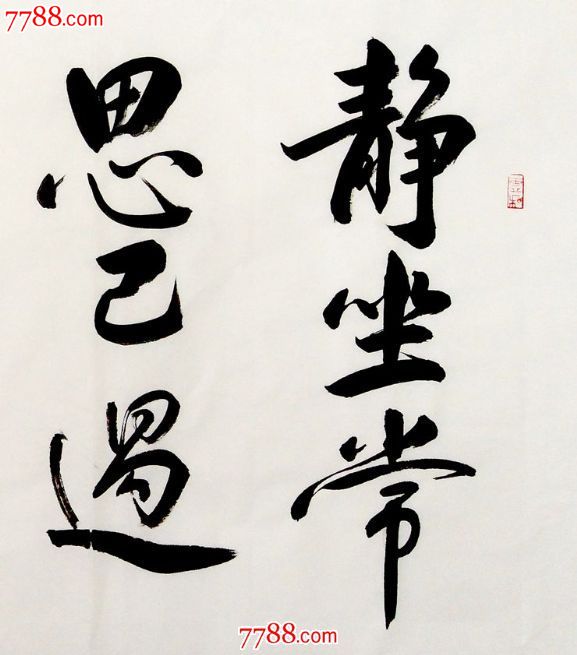 7788.com
静坐常
思己过
7788.com